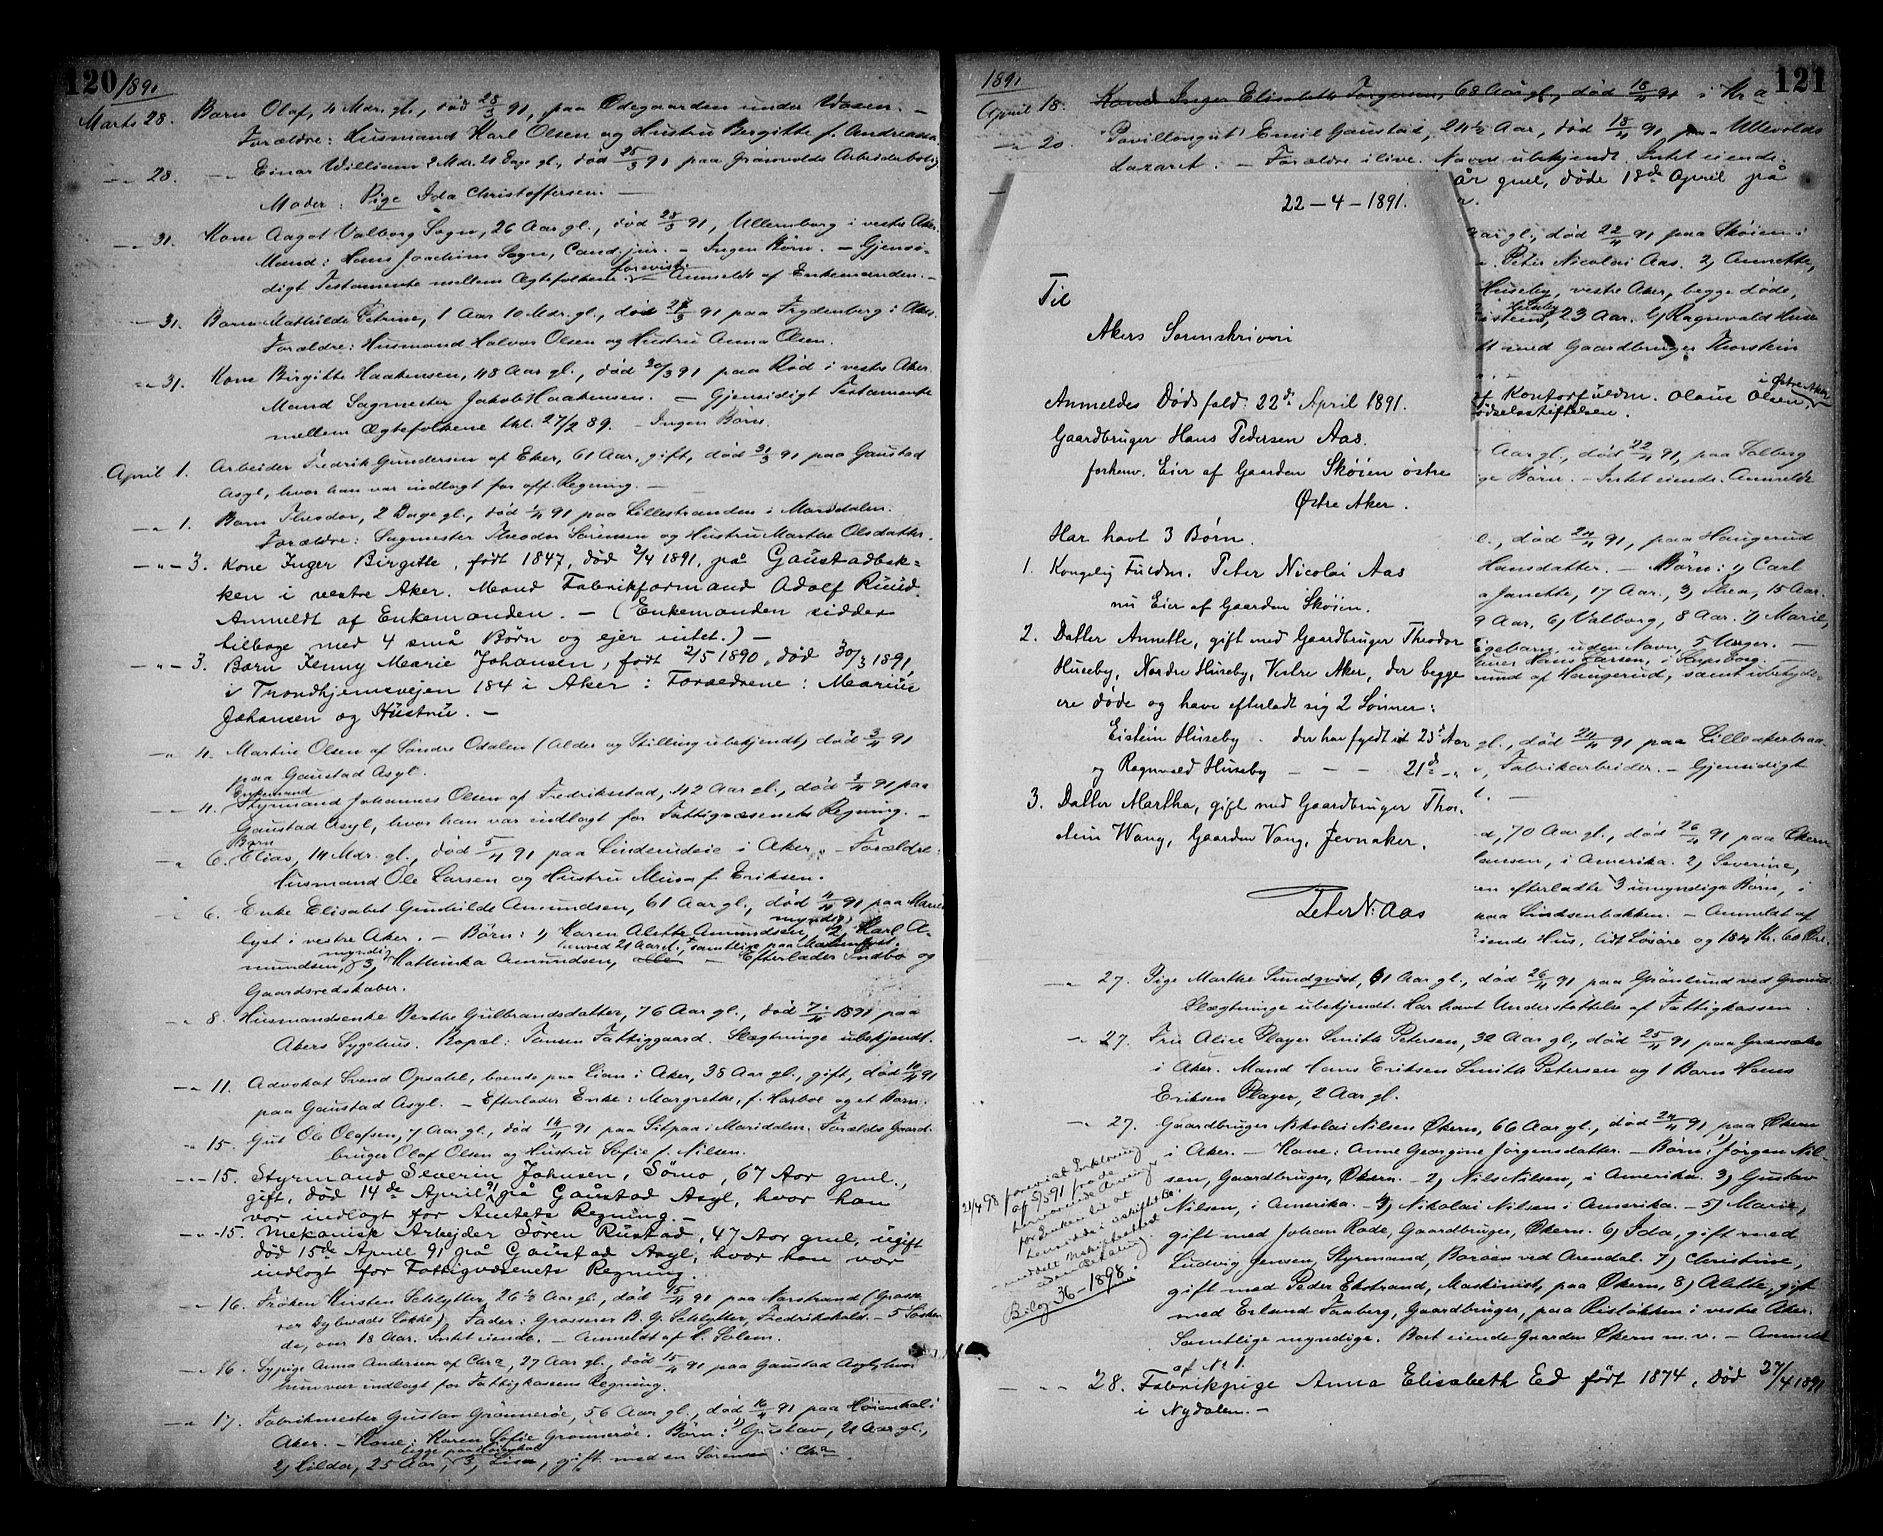 120/891
Marts 28. Barn Olaf, 4 Mdr. gl., død 28/3 91, paa Ødegaarden under Vøsen. –
Forældre: Husmand Karl Olsen og Hustru Birgitte f. Andreassen
— 28. — Einar William 2 Mdr. 21 Dage gl., død 25/3 91 paa Grønvolds Arbeiderbolig
Moder: Pige Ida Christoffersen. —
— 31. Kone Aagot Valborg Sogn, 26 Aar gl., død 28/3 91, Ullernborg i vestre Aker.
Mand: Hans Joachim Sogn, Cand. jur. – Ingen Børn. – Gjensi-
digt Testamente mellem Ægtefolkene forevist. Anmeldt af Enkemanden. –
— 31. Barn Mathilde Petrine, 1 Aar 10 Mdr. gl., død 28/3 91 paa Frydenberg i Aker.
Forældre: Husmand Halvor Olsen og Hustru Anna Olsen.
— 31. Kone Birgitte Haakensen, 48 Aar gl., død 30/3 91 paa Rød i vestre Aker.
Mand Sagmester Jakob Haakensen. – Gjensidigt Testamente
mellem Ægtefolkene thl. 27/2 89. – Ingen Børn.
April 1. Arbeider Fredrik Gundersen af Eker, 61 Aar, gift, død 31/3 91 paa Gaustad
Asyl, hvor han var indlagt for off. Regning. –
— 1. Barn Theodor, 2 Dage gl., død 1/4 91 paa Lillestranden i Maridalen.
Forældre: Sagmester Theodor Sørensen og Hustru Marthe Olsdatter.
— 3. Kone Inger Birgitte, født 1847, død 2/4 1891, på Gaustadbek-
ken i vestre Aker. Mand Fabrikformand Adolf Ruud.
Anmeldt af Enkemanden. – (Enkemanden sidder
tilbage med 4 små Børn og ejer intet.) –
— 3. Barn Jenny Marie Johansen, født 2/5 1890, død 30/3 1891,
i Trondhjemsvejen 184 i Aker: Forældrene: Marius
Johansen og Hustru. –
— 4. Martin Olsen af Søndre Odalen (Alder og Stilling ubekjendt) død 3/4 91
paa Gaustad Asyl.
Enkemand
— 4. Styrmand Johannes Olsen af Fredriksstad, 42 Aar gl., død 3/4 91 paa
Gaustad Asyl, hvor han var indlagt for Fattigvæsenets Regning. –
Barn
— 6. Elias, 14 Mdr. gl., død 5/4 91 paa Linderudeie i Aker. – Forældre:
Husmand Ole Larsen og Hustru Musa f. Eriksen.
— 6. Enke Elisabet Gunhilde Amundsen, 61 Aar gl., død 4/4 91 paa Marien-
lyst i vestre Aker. – Børn: 1) Karen Alette Amundsen, myndig, 2) Karl A-
mundsen, myndig, 3) Mathinka Amundsen, – Efterlader Indbo og
Gaardsredskaber.
— 8. Husmandsenke Berthe Gulbrandsdatter, 76 Aar gl., død 7/4 1891 paa
Akers Sygehus. Bopæl: Tonsen Fattiggaard. Slægtninge ubekjendt.
— 11. Advokat Svend Opsahl, boende paa Lian i Aker, 38 Aar gl., gift, død 10/4 91
paa Gaustad Asyl. – Efterlader Enke: Margrethe, f. Harboe og et Barn.
— 15. Gut Ole Olafsen, 7 Aar gl., død 14/4 91 paa Sitpaa i Maridalen. Forældre Gaard-
bruger Olaf Olsen og Hustru Sofie f. Nilsen.
— 15. Styrmand Severin Johnsen, Sömo, 67 Aar gml.,
gift, död 14de April 91 på Gaustad Asyl, hvor han
var indlagt for Amtets Regning. –
— 15. Mekanisk Arbejder Sören Rustad, 47 Aar gml., ugift
död 15de April 91 på Gaustad Asyl, hvor han var
indlagt for Fattigvæsenets Regning.
— 16. Frøken Kirsten Schlytter, 26 ½ Aar gl., død 15/4 91 paa Norstrand (Grosse-
rer Dybwads Løkke), Fader: Grosserer B. G. Schlytter, Fredrikshald. – 5 Søsken-
de, over 18 Aar. Intet eiende. – Anmeldt af C. Solem.
— 16. Sypige Anna Andersen af Chra, 27 Aar gl., død 15/4 91 paa Gaustad Asyl, hvor
hun var indlagt for Fattigkassens Regning.
— 17. Fabrikmester Gustav Grønnerøe, 56 Aar gl., død 16/4 91 paa Høienhal i
Aker. – Kone: Karen Sofie Grønnerøe. Børn: 1) Gustav, 21 Aar gl.,
2) Hilda, 25 Aar, begge paa Høienhal, 3) Lisa, gift med en Sørensen i Chra.
1891
121
April 18. Kone Inger Elisabeth Torgersen, 68 Aar gl., død 18/4 91 i Kra
— 20. Pavillongut Emil Gaustad, 24½ Aar, død 18/4 91 paa Ullevolds
Lazaret. – Forældre ilive. Navne ubekjendt. Intet eiende.
år gml, døde 18de April på
22–4–1891.
Til
Akers Sorenskriveri
Anmeldes Dødsfald: 22de April 1891.
Gaardbruger Hans Pedersen Aas.
forhenv. Eier af Gaarden Skøien østre
Østre Aker.
Har havt 3 Børn.
1. Kongelig Fuldm. Peter Nicolai Aas
nu Eier af Gaarden Skøien.
2. Datter Annette, gift med Gaardbruger Theodor
Huseby, Nordre Huseby, Vestre Aker, der begge
ere døde og have efterladt sig 2 Sønner:
Eistein Huseby – der har fyldt sit 23de Aar
og Regnvald Huseby – – – 21de –
3. Datter Martha, gift med Gaardbruger Thor-
stein Wang, Gaarden Vang, Jevnaker.
Peter N. Aas
Aar gl., død 22/4 91 paa Skøien i
Peter Nicolai Aas. 2) Annette,
Huseby, vestre Aker, begge døde,
Huseby, 23 Aar. b) Ragnvald Huse
dt med Gaardbruger Thorstein
af Kontorfuldm. Olaus Olsen, i Østre Aker
ødselsstiftelsen.
Aar gl., død 22/4 91, paa Solberg
ge Børn. – Intet eiende. Anmeldt
l., død 24/4 91, paa Haugerud
Hansdatter. – Børn: 1) Carl
Janette, 17 Aar., 3) Thea, 15 Aar.
9 Aar, 6) Valborg, 8 Aar. 7) Marie,
igebarn, uden Navn, 5 Uger. –
Hans Larsen, i Sarpsborg.
rud af Haugerud, samt ubetyde-
gl., død 24/4 91 paa Lilleakerbraa-
, Fabrikarbeider. – Gjensidigt
d, 70 Aar gl., død 26/4 91 paa Økern
lansen, i Amerika. 2) Severine,
en efterladte 3 umyndige Børn, i
paa Lindsenbakken. – Anmeldt af
Eiende Hus, lidt Løsøre og 184 Kr. 60 Øre.
— 27. Pige Marthe Sundqvist, 61 Aar gl., død 26/4 91 paa Grønlund ved Grorud.
Slægtninge ubekjendt. Har havt Understøttelse af Fattigkassen.
— 27. Fru Alice Player Smith Petersen, 32 Aar gl., død 25/4 91 paa Grævsko
i Aker. Mand Hans Eriksen Smith Petersen og 1 Barn Hans
Eriksen Player, 2 Aar gl.
— 27. Gaardbruger Nikolai Nilsen Økern, 66 Aar gl., død 24/4 91 paa Økern
i Aker. – Kone: Anne Georgine Jørgensdatter. – Børn: 1) Jørgen Nil-
sen, Gaardbruger, Økern. – 2) Nils Nilsen, i Amerika. 3) Gustav
Nilsen, i Amerika. – 4) Nikolai Nilsen i Amerika. – 5) Marie,
gift med Johan Rode, Gaardbruger, Økern. 6) Ida, gift med
Ludvig Jensen, Styrmand, Barøen ved Arendal. 7) Christine,
gift med Peder Ekstrand, Maskinist, paa Økern, 8) Alette, gift
med Erland Faaberg, Gaardbruger, paa Risløkken i vestre Aker.
Samtlige myndige. Bort eiende Gaarden Økern m. v. – Anmeldt
af No 1.
21/4 98 forevist Erklæring
af 5/5 91 fra de
for Enken til at
Bilag 36–1898.
— 28. Fabrikpige Anna Elisabeth Ed født 1874, død 27/4 1891
i Nydalen. –